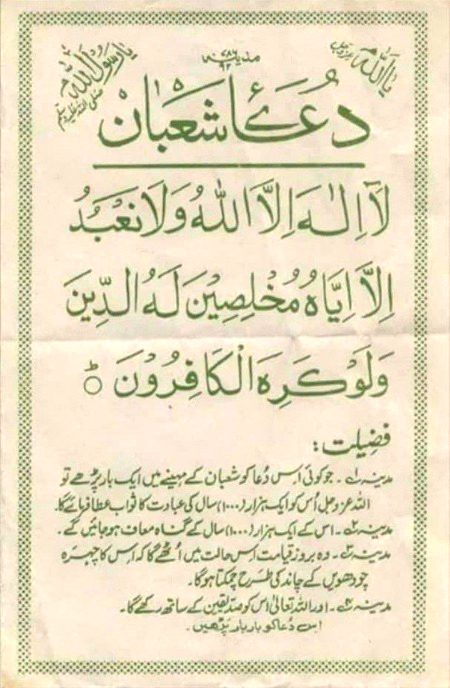 یا اللہ عزوجل
مدینہ
۷۸۶
۹۲
یا رسول اللہ صلی اللہ علیہ وسلم
دُعَائے شَعْبَانْ
لَآ اِلٰہَ اِلَّا اللہُ وَلَا نَعْبُدُ
اِلَّا اِیَّاہُ مُخْلِصِیْنَ لَہُ الدِّیْنَ
وَلَوْ کَرِہَ الْکَافِرُوْنَ ۝
فضیلت:
مدینہ ۱۔ جو کوئی اس دُعا کو شعبان کے مہینے میں ایک بار پڑھے تو
اللہ عزوجل اُس کو ایک ہزار (۱۰۰۰) سال کی عبادت کا ثواب عطا فرمائے گا۔
مدینہ ۲۔ اس کے ایک ہزار (۱۰۰۰) سال کے گناہ معاف ہو جائیں گے۔
مدینہ ۳۔ وہ بروز قیامت اس حالت میں اُٹھے گا کہ اس کا چہرہ
چودھویں کے چاند کی طرح چمکتا ہوگا۔
مدینہ ۴۔ اور اللہ تعالیٰ اس کو صدیقین کے ساتھ رکھے گا۔
اس دُعا کو بار بار پڑھیں۔